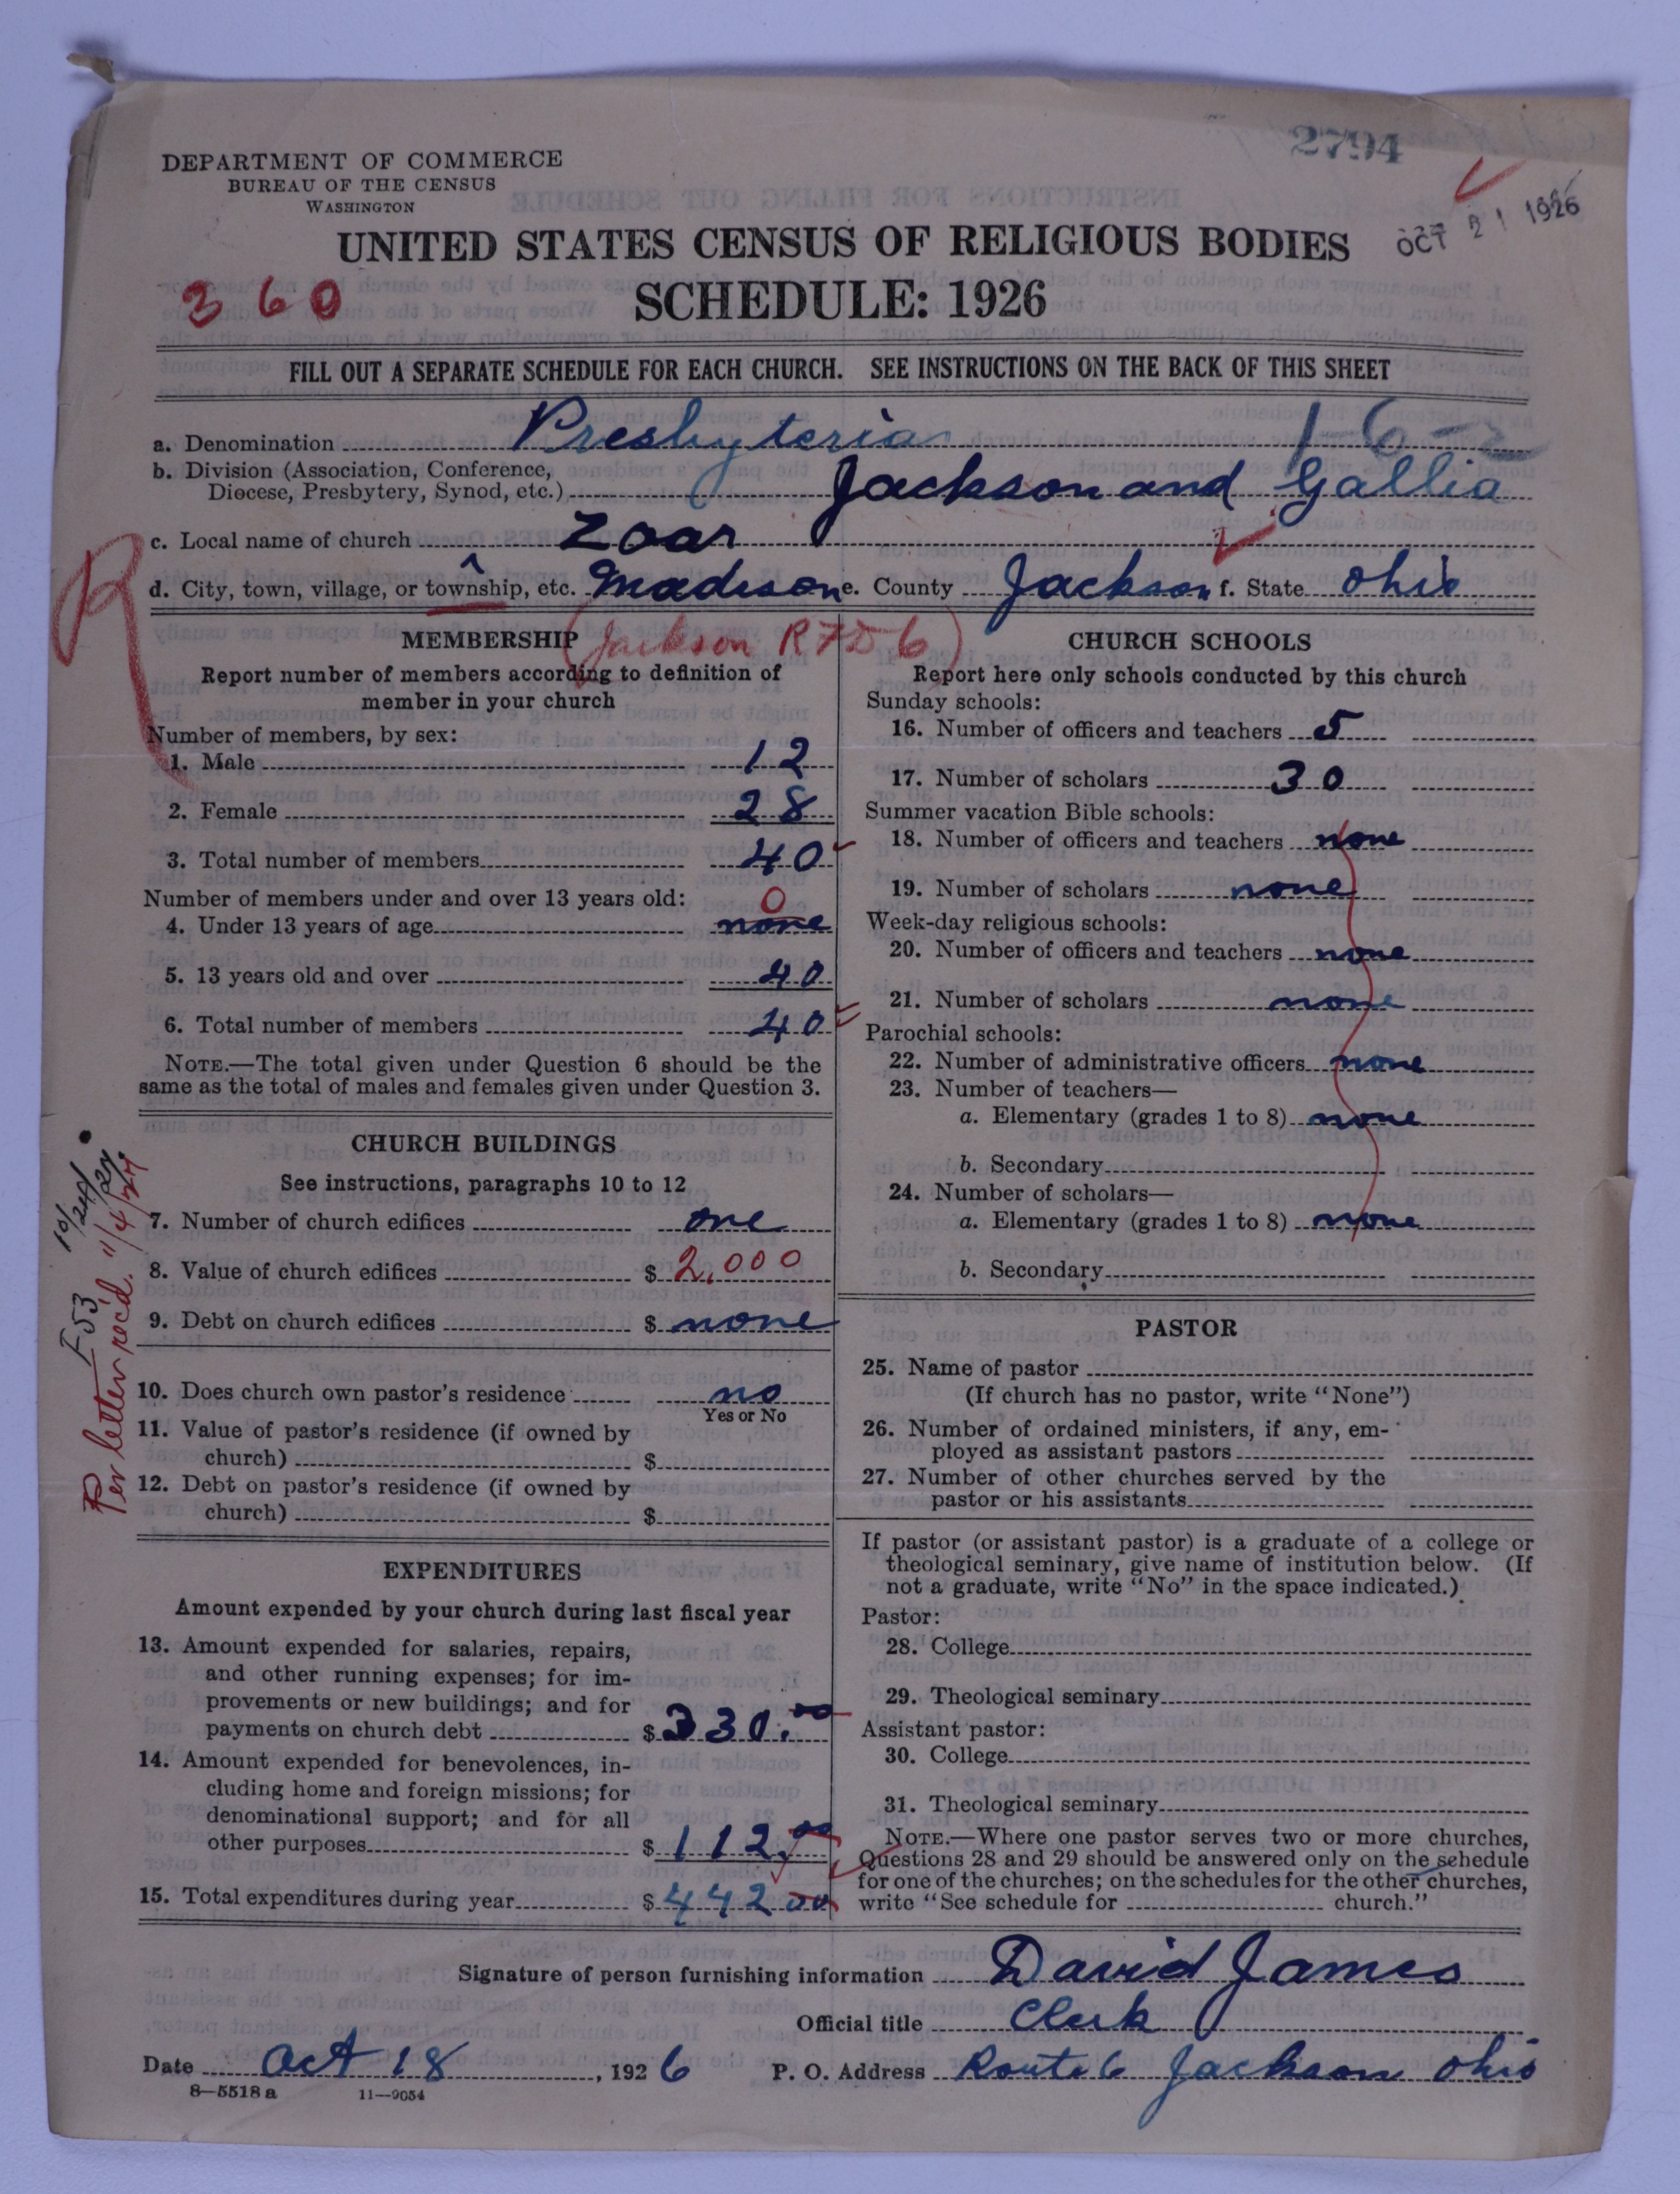 2794
DEPARTMENT OF COMMERCE
BUREAU OF THE CENSUS
WASHINGTON
OCT 21 1926
UNITED STATES CENSUS OF RELIGIOUS BODIES
360
SCHEDULE: 1926
FILL OUT A SEPARATE SCHEDULE FOR EACH CHURCH. SEE INSTRUCTIONS ON THE BACK OF THIS SHEET
a. Denomination Presbyterian 16-2
b. Division (Association, Conference,
Diocese, Presbytery, Synod, etc.) Jackson and Gallia
c. Local name of church Zoar
d. City, town, village, or township, etc. Madison e. County Jackson f. State Ohio
R
(Jackson RFD 6)
MEMBERSHIP
Report number of members according to definition of
member in your church
Number of members, by sex:
1. Male 12
2. Female 28
3. Total number of members 40
Number of members under and over 13 years old:
0
4. Under 13 years of age none
5. 13 years old and over 40
6. Total number of members 40
NOTE.—The total given under Question 6 should be the
same as the total of males and females given under Question 3.
CHURCH BUILDINGS
See instructions, paragraphs 10 to 12
7. Number of church edifices one
8. Value of church edifices $ 2,000
9. Debt on church edifices $ none
10. Does church own pastor's residence no
Yes or No
11. Value of pastor's residence (if owned by
church) $
12. Debt on pastor's residence (if owned by
church) $
Per letter rec'd. 11/4/27
F53 10/24/27
EXPENDITURES
Amount expended by your church during last fiscal year
13. Amount expended for salaries, repairs,
and other running expenses; for im-
provements or new buildings; and for
payments on church debt $ 330.00
14. Amount expended for benevolences, in-
cluding home and foreign missions; for
denominational support; and for all
other purposes $ 112.00
15. Total expenditures during year $ 442 00
CHURCH SCHOOLS
Report here only schools conducted by this church
Sunday schools:
16. Number of officers and teachers 5
17. Number of scholars 30
Summer vacation Bible schools:
18. Number of officers and teachers none
19. Number of scholars none
Week-day religious schools:
20. Number of officers and teachers none
21. Number of scholars none
Parochial schools:
22. Number of administrative officers none
23. Number of teachers—
a. Elementary (grades 1 to 8) none
b. Secondary
24. Number of scholars—
a. Elementary (grades 1 to 8) none
b. Secondary
PASTOR
25. Name of pastor
(If church has no pastor, write "None")
26. Number of ordained ministers, if any, em-
ployed as assistant pastors
27. Number of other churches served by the
pastor or his assistants
If pastor (or assistant pastor) is a graduate of a college or
theological seminary, give name of institution below. (If
not a graduate, write "No" in the space indicated.)
Pastor:
28. College
29. Theological seminary
Assistant pastor:
30. College
31. Theological seminary
NOTE.—Where one pastor serves two or more churches,
Questions 28 and 29 should be answered only on the schedule
for one of the churches; on the schedules for the other churches,
write "See schedule for church."
Signature of person furnishing information David James
Official title Clerk
Date Oct 18, 1926 P. O. Address Route 6 Jackson Ohio
8—5518 a 11—9054